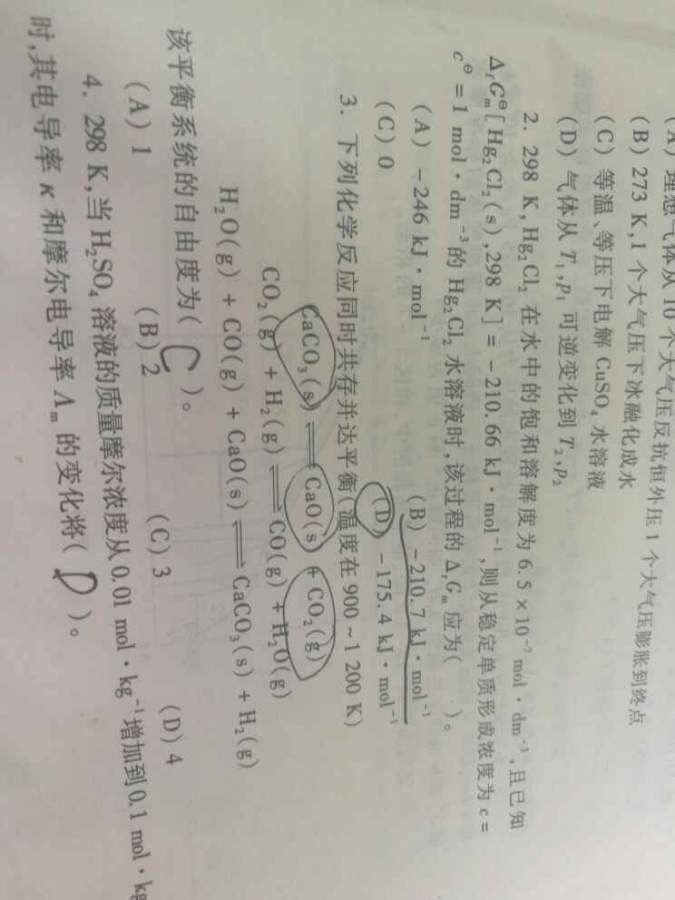 (A) 理想气体从 10 个大气压反抗恒外压 1 个大气压膨胀到终点
(B) 273 K,1 个大气压下冰融化成水
(C) 等温、等压下电解 CuSO₄ 水溶液
(D) 气体从 T₁,p₁ 可逆变化到 T₂,p₂
2. 298 K,Hg₂Cl₂ 在水中的饱和溶解度为 6.5 × 10⁻⁷ mol · dm⁻³,且已知
ΔfG⊖m[Hg₂Cl₂(s),298 K] = -210.66 kJ · mol⁻¹,则从稳定单质形成浓度为 c =
c⊖ = 1 mol · dm⁻³ 的 Hg₂Cl₂ 水溶液时,该过程的 ΔfGm 应为( )。
(A) -246 kJ · mol⁻¹ (B) -210.7 kJ · mol⁻¹
(C) 0 (D) -175.4 kJ · mol⁻¹
3. 下列化学反应同时共存并达平衡(温度在 900 ~ 1 200 K)
CaCO₃(s) ⇌ CaO(s) + CO₂(g)
CO₂(g) + H₂(g) ⇌ CO(g) + H₂O(g)
H₂O(g) + CO(g) + CaO(s) ⇌ CaCO₃(s) + H₂(g)
该平衡系统的自由度为( C )。
(A) 1 (B) 2 (C) 3 (D) 4
4. 298 K,当 H₂SO₄ 溶液的质量摩尔浓度从 0.01 mol · kg⁻¹ 增加到 0.1 mol · kg
时,其电导率 κ 和摩尔电导率 Λm 的变化将( D )。